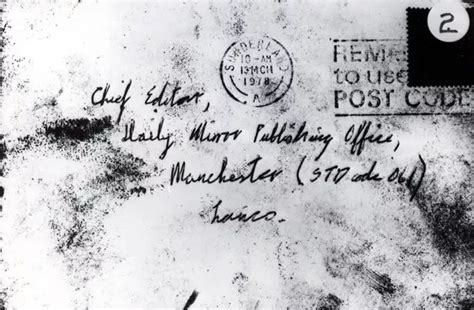 2
SUNDERLAND
10-AM
13 MCH
1978
A
REME
to use
POST CODE
Chief Editor,
Daily Mirror Publishing Office,
Manchester (STD code 061)
Lancs.